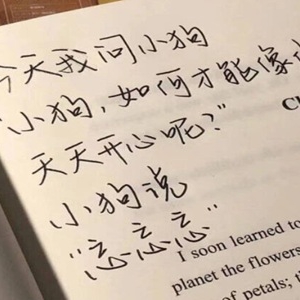 今天我问小狗
小狗，如何才能像
天天开心呢？”
小狗说
“忘忘忘”
I soon learned to
planet the flowers
of petals;